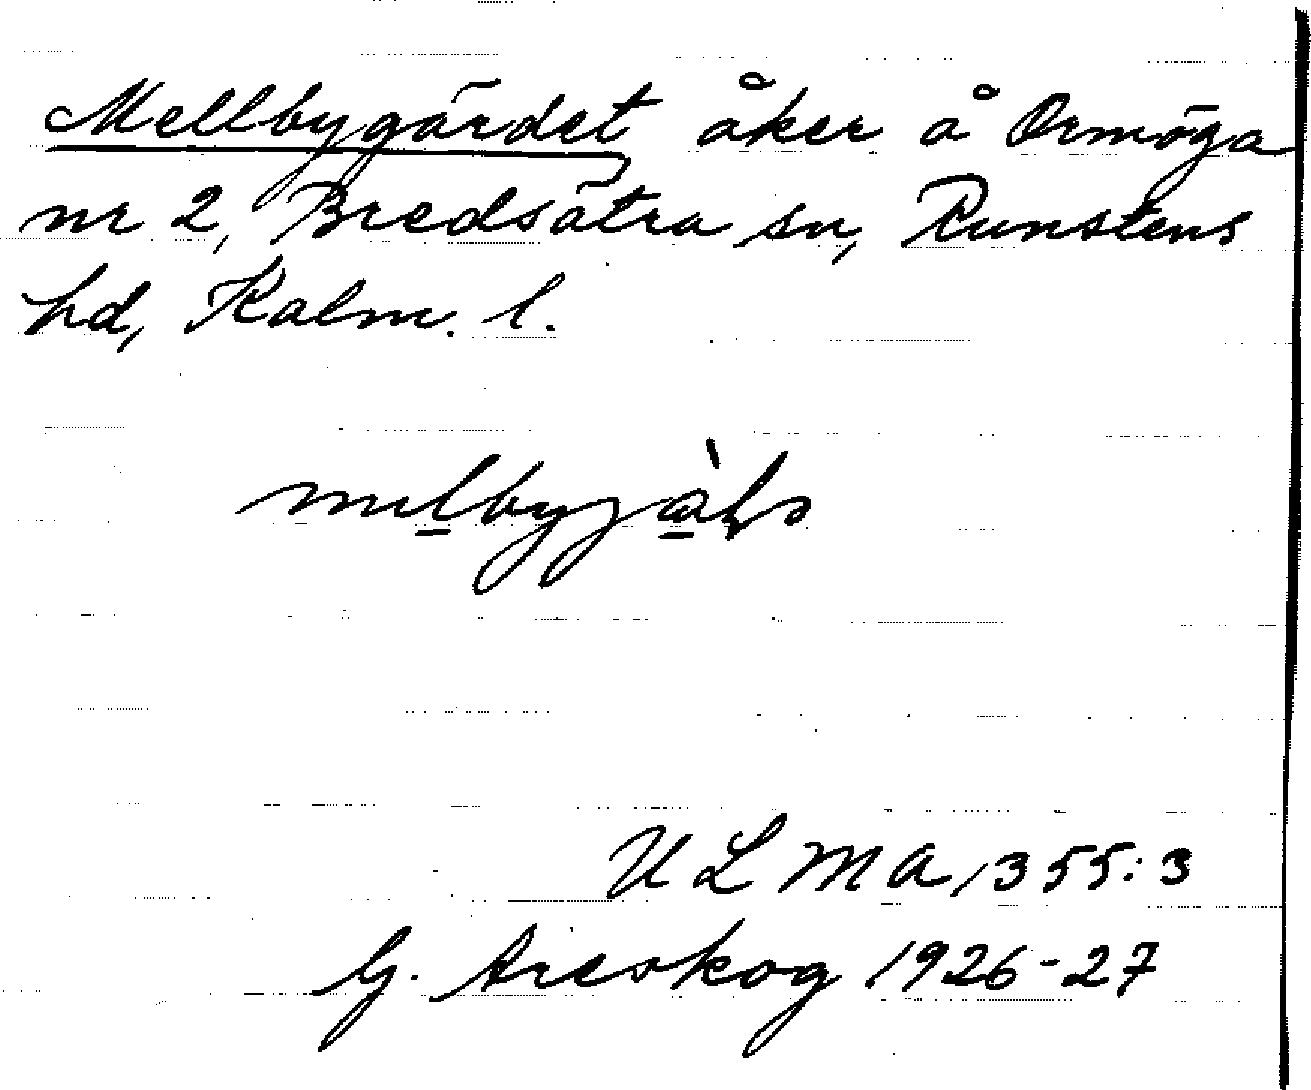 Mellbygärdet, åker å Ormöga
nr 2, Bredsätra sn, Runstens
hd, Kalm. l.
ULMA 1355:3
G. Areskog 1926-27